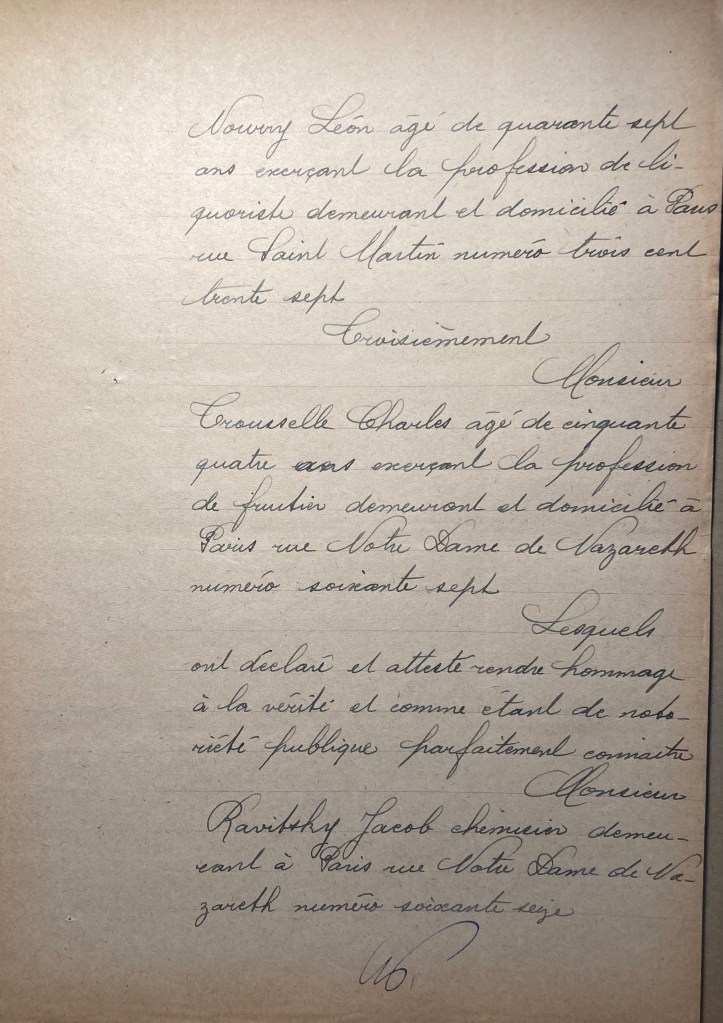 Nowry Léon âgé de quarante sept
ans exerçant la profession de li-
quoriste demeurant et domicilié à Paris
rue Saint Martin numéro trois cent
trente sept
Troisièmement
Monsieur
Trousselle Charles âgé de cinquante
quatre ans exerçant la profession
de fruitier demeurant et domicilié à
Paris rue Notre Dame de Nazareth
numéro soixante sept
Lesquels
ont déclaré et attesté rendre hommage
à la vérité et comme étant de noto-
riété publique parfaitement connaitre
Monsieur
Ravitsky Jacob chemisier demeu-
rant à Paris rue Notre Dame de Na-
zareth numéro soixante seize